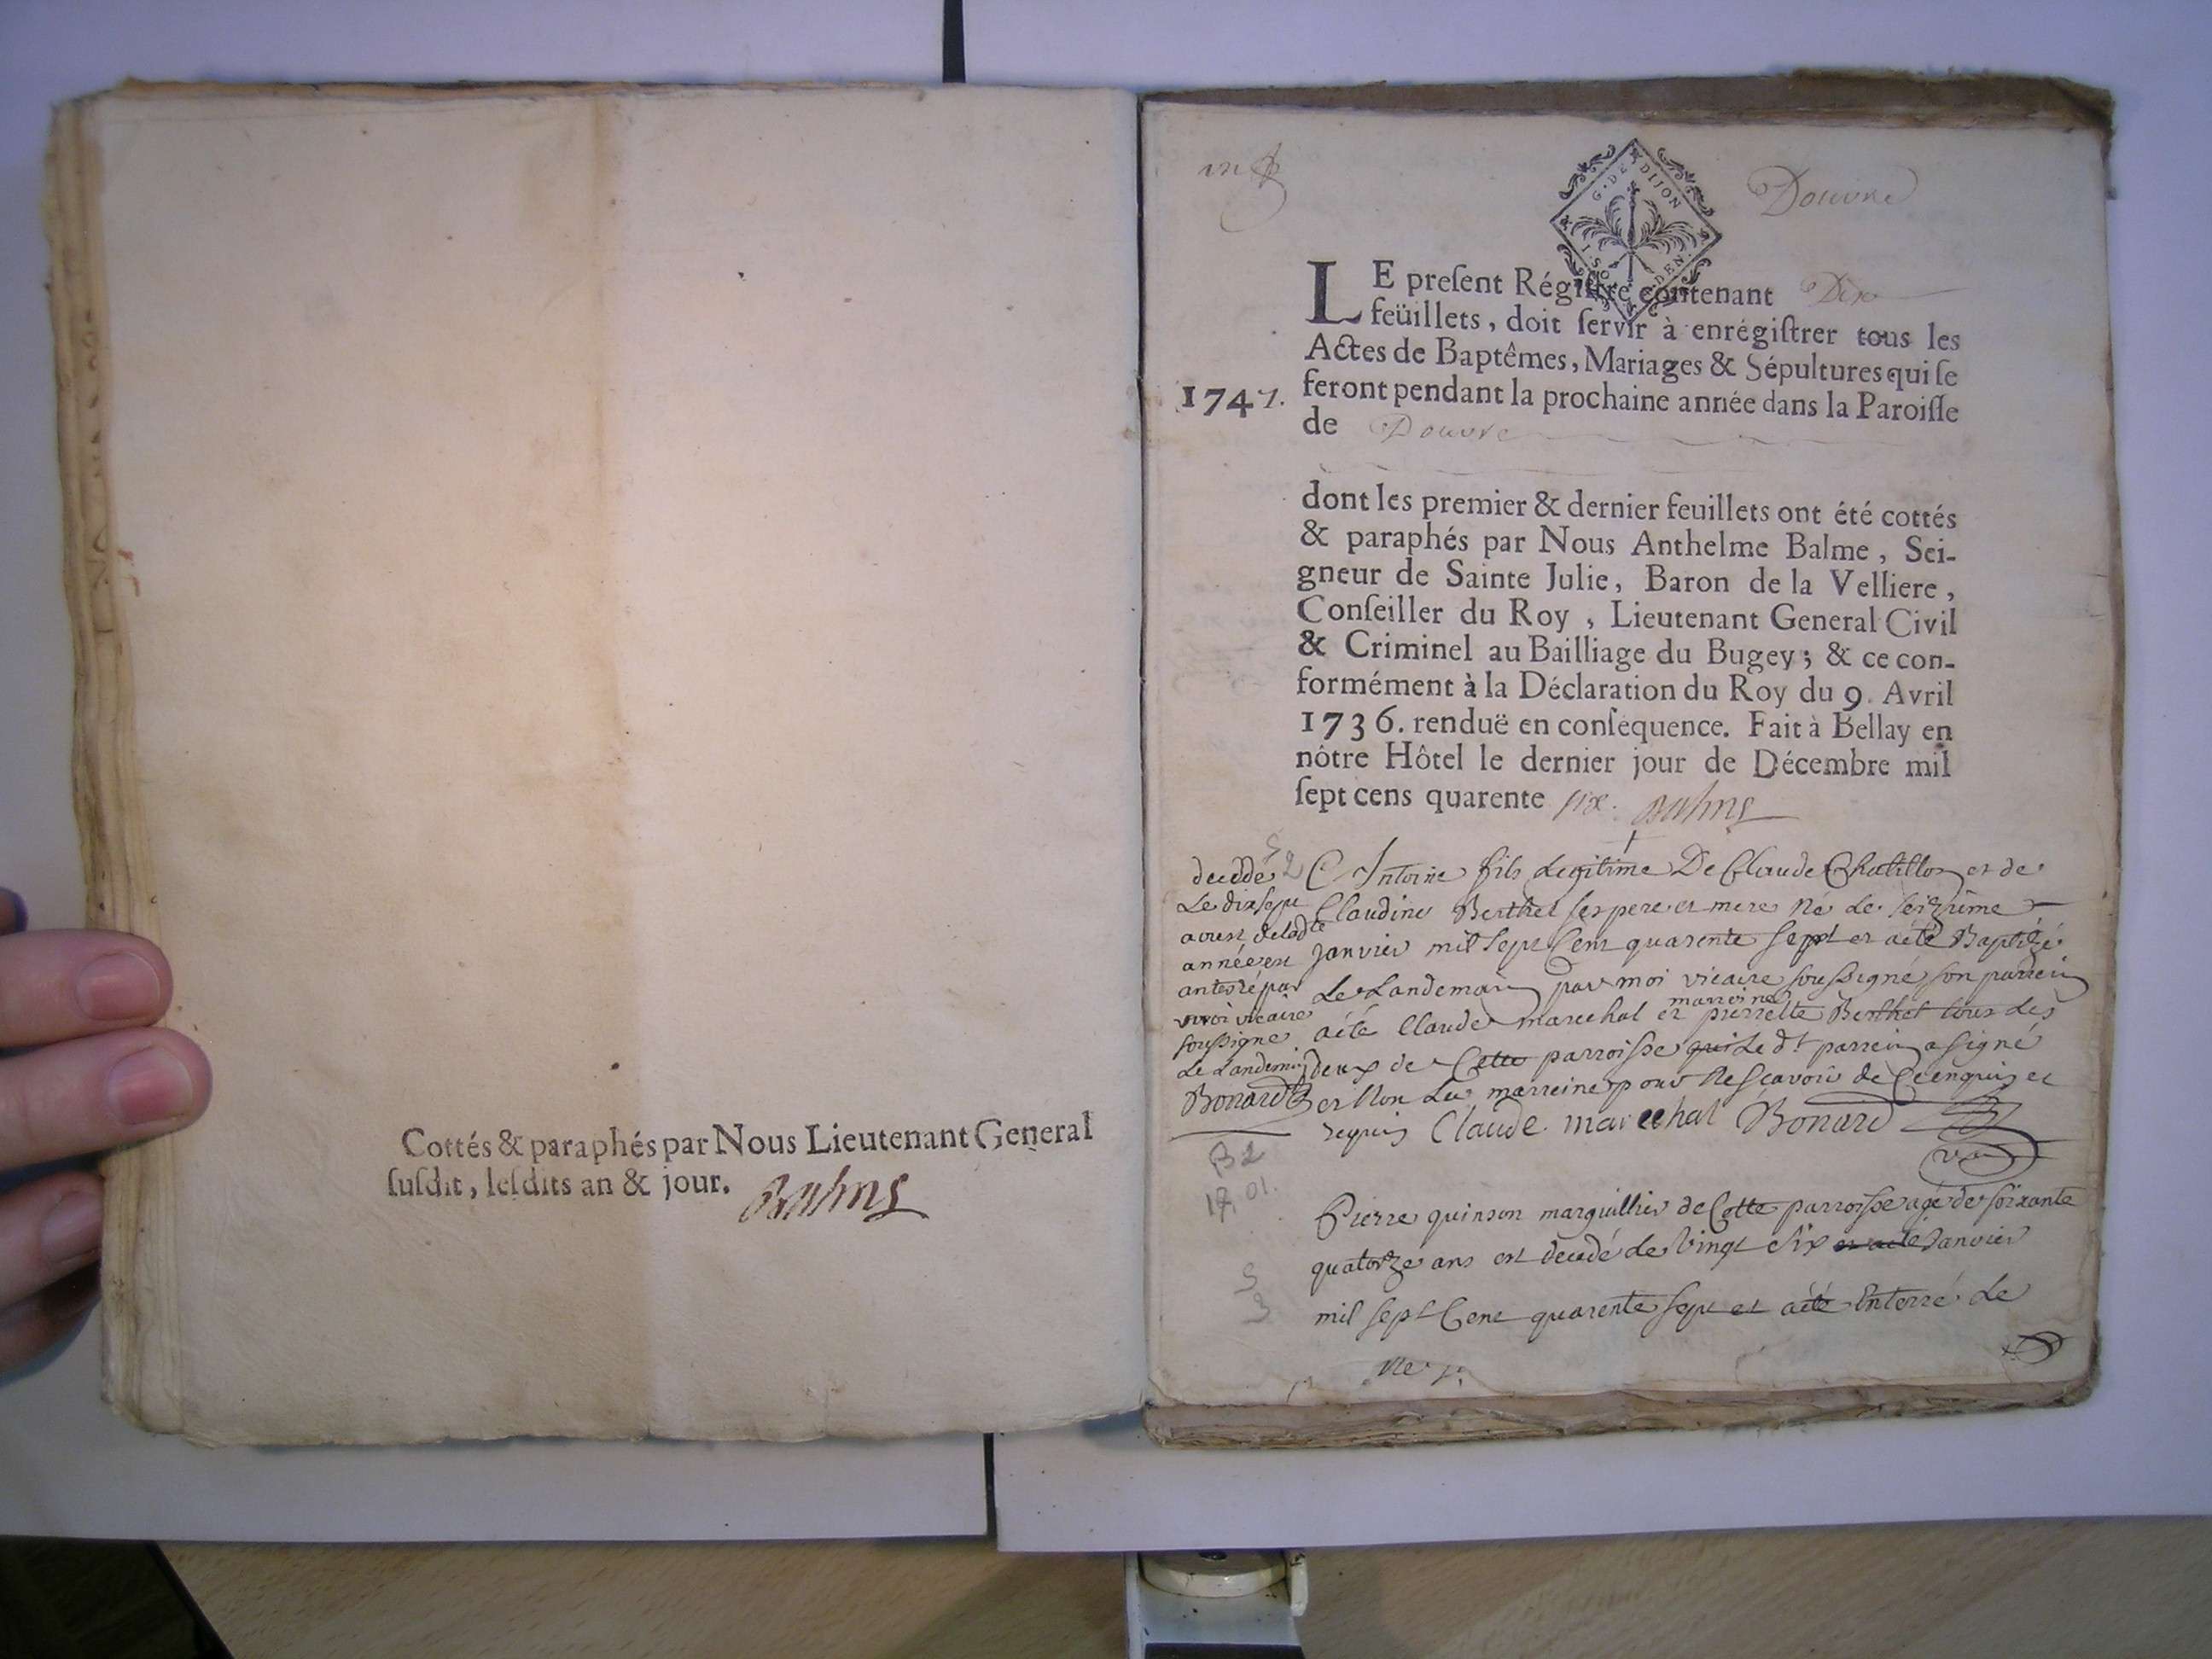 Cottés & paraphés par Nous Lieutenant General
susdit, lesdits an & jour. Balme
Douvre
G. DE DIJON
LE present Régistre contenant Dix
feüillets, doit servir à enrégistrer tous les
Actes de Baptêmes, Mariages & Sépultures qui se
1747. feront pendant la prochaine année dans la Paroisse
de Douvre
dont les premier & dernier feuillets ont été cottés
& paraphés par Nous Anthelme Balme, Sei-
gneur de Sainte Julie, Baron de la Velliere,
Conseiller du Roy, Lieutenant General Civil
& Criminel au Bailliage du Bugey; & ce con-
formément à la Déclaration du Roy du 9. Avril
1736. renduë en consequence. Fait à Bellay en
nôtre Hôtel le dernier jour de Décembre mil
sept cens quarente six. Balme
decedé
Le dixsept
aoust deladte
année et
enterré par
moi vicaire
soussigne
Le Landemain
Bonard
Antoine fils Legitime De Claude Chatillon et de
Claudine Berthet ses pere et mere né le seizieme
janvier mil sept Cent quarente sept et aété Baptizé
Le Landemain par moi vicaire soussigné son parrein
marreine
aété Claude marechal et pierrette Berthet tous des
deux de Cette parroisse qui Le dt parrein a signé
et Non La marreine pour Ne sçavoir de Ce enquis et
requis Claude marechal Bonard
B 2
S
2
Pierre quinson marguillier de Cette parroisse agé de soixante
quatorze ans est decedé le vingt six et aété Janvier
S
3
mil sept Cent quarente sept et aété Enterré Le